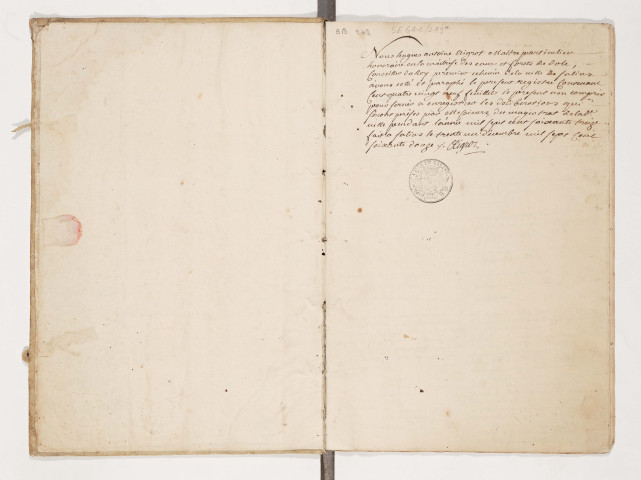 BB
Nous hugues antoine Aigrot Maitre particulier
honoraire en la maitrise des eaux et forets de dole,
Conseiller du Roy premier echevin de la ville de salins
avons cotté et paraphé le present registre Contenant
cent quatre vingt neuf feuillets le present non compris
pour servir a enregistrer les deliberations qui
seront prises par Messieurs du magistrat de lad.
ville pendant l'année mil sept cent soixante treize
fait a salins le trente un decembre mil sept cent
soixante douze